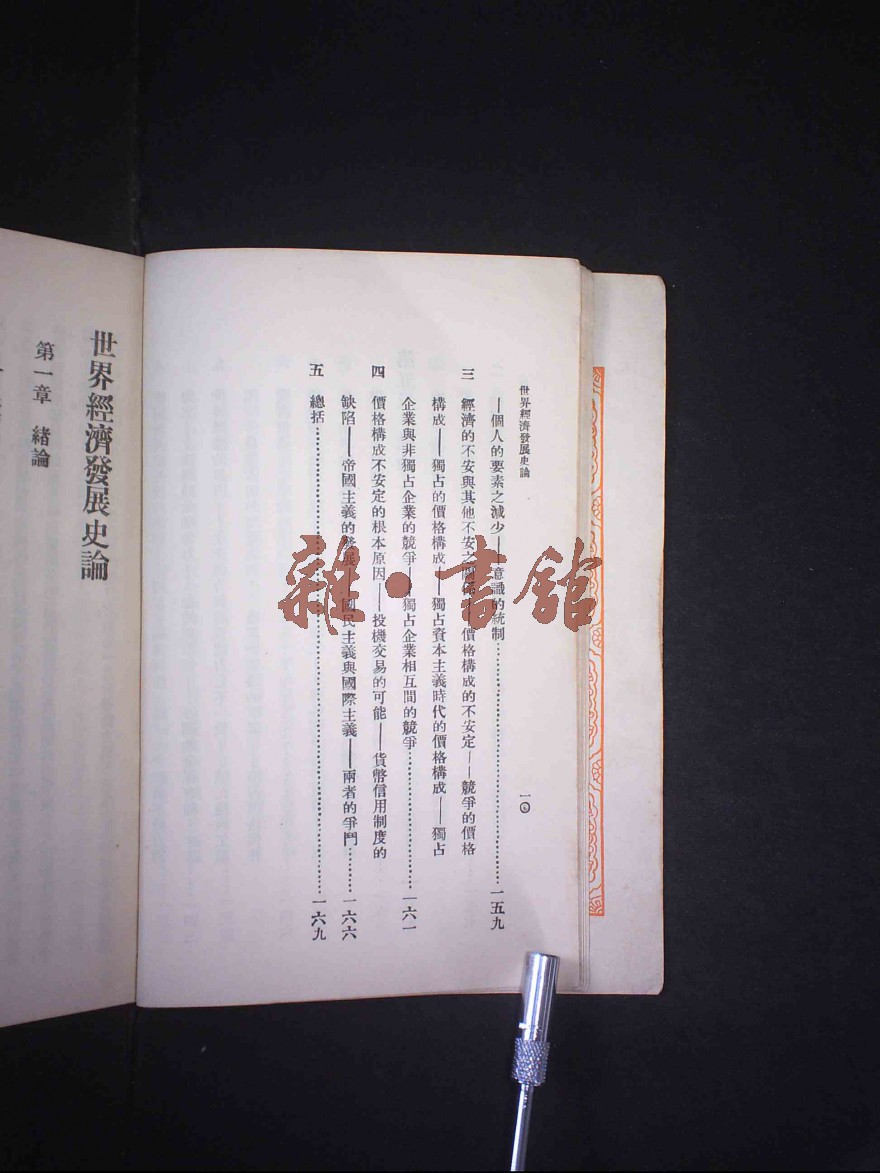 世界經濟發展史論
一〇
—個人的要素之減少——意識的統制……一五九
三 經濟的不安與其他不安之關係——價格構成的不安定——競爭的價格
構成——獨占的價格構成——獨占資本主義時代的價格構成——獨占
企業與非獨占企業的競爭——獨占企業相互間的競爭……一六一
四 價格構成不安定的根本原因——投機交易的可能——貨幣信用制度的
缺陷——帝國主義的發展——國民主義與國際主義——兩者的爭鬥……一六六
五 總括……一六九
世界經濟發展史論
第一章 緒論
雜·書館